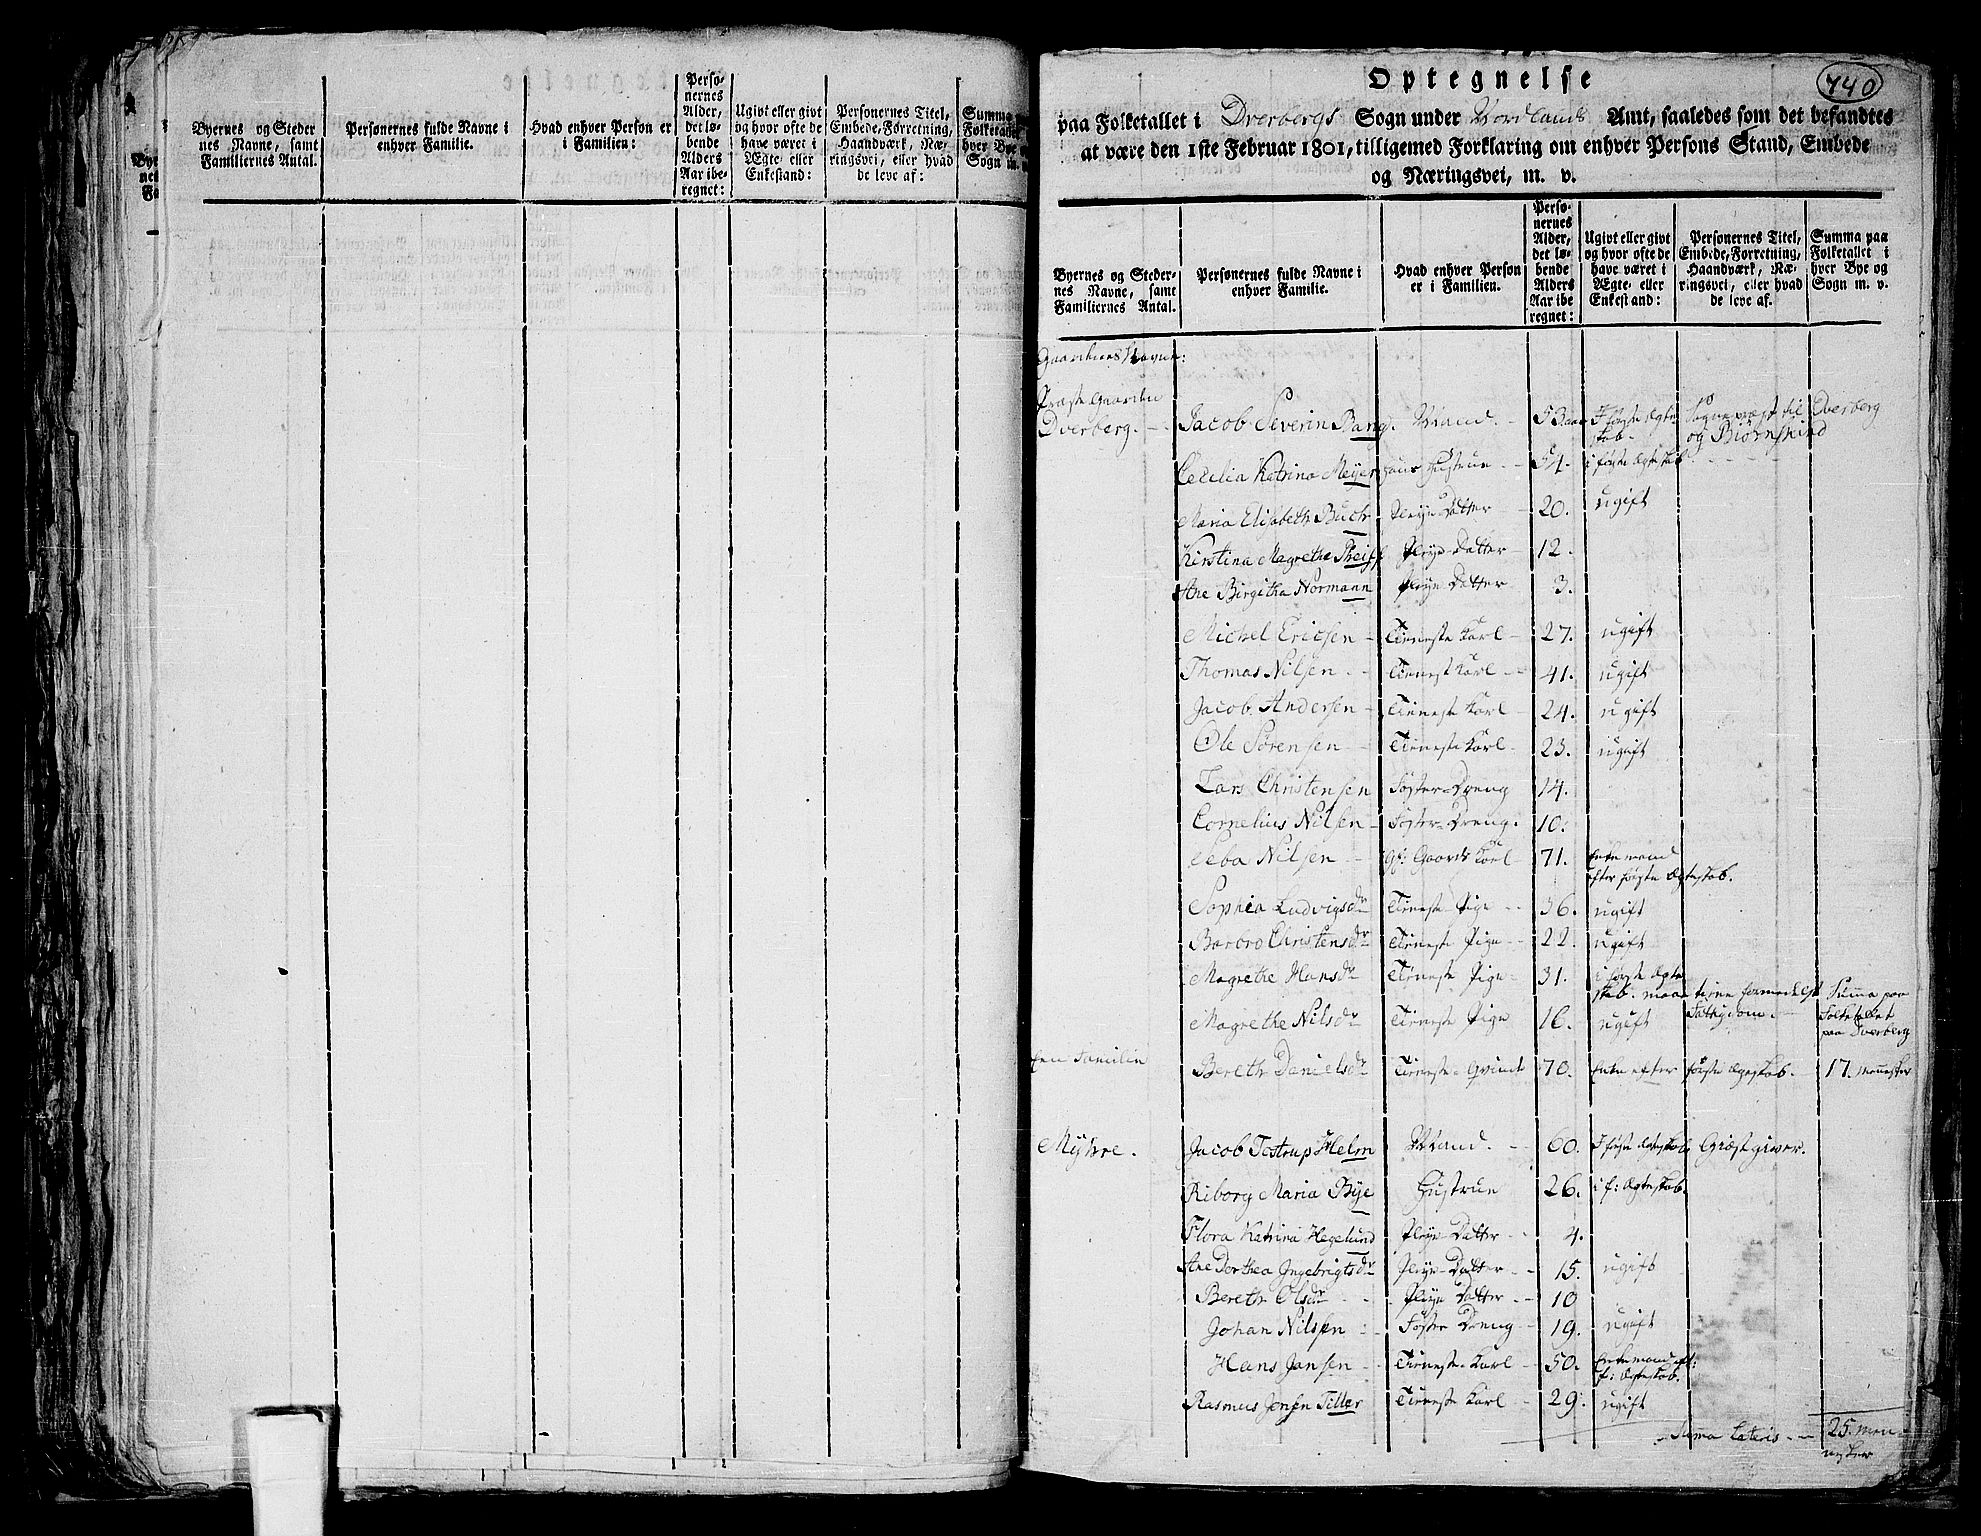 Byernes og Steder
nes Navne, samt
Familiernes Antal.
Personernes fulde Navne i
enhver Familie.
Hvad enhver Person er
i Familien:
Perso-
nernes
Alder,
det lø-
bende
Alders
Aar ibe-
regnet:
Ugivt eller givt
og hvor ofte de
have været i
Ægte eller
Enkestand:
Personernes Titel,
Embede, Forretning,
Haandværk, Næ-
ringsvei, eller hvad
de leve af:
Summa
Folketallet
hver Bye
Sogn m.
Optegnelse
440
paa Folketallet i Dverbergs Sogn under Nordlands Amt, saaledes som det befandtes
at være den 1ste Februar 1801, tilligemed Forklaring om enhver Persons Stand, Embede
og Næringsvei, m. v.
Byernes og Steder-
nes Navne, samt
Familiernes Antal.
Personernes fulde Navne i
enhver Familie.
Hvad enhver Person
er i Familien.
Perso-
nernes
Alder,
det lø-
bende
Alders
Aar ibe
regnet:
Ugivt eller givt
og hvor ofte de
have været i
Ægte- eller
Enkestand:
Personernes Titel,
Embede, Forretning,
Haandværk, Næ-
ringsvei, eller hvad
de leve af.
Summa paa
Folketallet i
hver Bye og
Sogn m. v.
Gaardenes Navne:
Præste Gaarden
Dverberg. Jacob Severin Bang. Mand. 53 aar I første Ægte- Sogneprest til Dverberg
skab. og Biørnskind
Cecilia Katrina Meyer hans Hustrue 54. i første Ægteskab
Maria Elisabeth Buch Pleye Datter 20. ugift
Kirstina Magrethe Pleye-Datter 12.
Ane Birgitha Normann Pleye-Datter 3.
Michel Ericsen Tieneste Karl 27. ugift
Thomas Nilsen Tienest Karl 41. ugift
Jacob Andersen Tieneste Karl 24. ugift
Ole Sørensen Tieneste Karl 23. ugift
Lars Christensen Foster-Dreng 14.
Cornelius Nilsen Foster-Dreng. 10.
Seba Nilsen Gaards Karl 71. Enkemand
efter første Ægteskab.
Sophia Ludvigsdr Tieneste Pige 36. ugift
Barbro Christensdr Tieneste Pige 22. ugift
Magrethe Hansdr Tieneste Pige 31. i første Ægte
skab. maa tiene formedelst Summa paa
Magrethe Nilsdr Tieneste Pige 16. ugift Fattigdom. Folketallet
paa Dverberg
Een Familie Bereth Danielsdr Tieneste-Qvinde 70. Enke efter første Ægteskab. 17. Mennesker
Myhre. Jacob Testrup Helm Mand. 60. I første Ægteskab Giæstgiver.
Riborg Maria Bye Hustrue 26. i f: Ægteskab.
Flora Katrina Hegelund Pleye-Datter 4.
Ane Dorthea Ingebrigtsdr Pleye-Datter 15. ugift
Bereth Olsdr Pleye Datter 10
Johan Nilsen Foster Dreng 19. ugift
Hans Jansen Tieneste-Karl 50. Enkemand eft:
f: Ægteskab.
Rasmus Jensen Tiller Tieneste Karl 29. ugift
Suma Lateris 25. Men
nesker